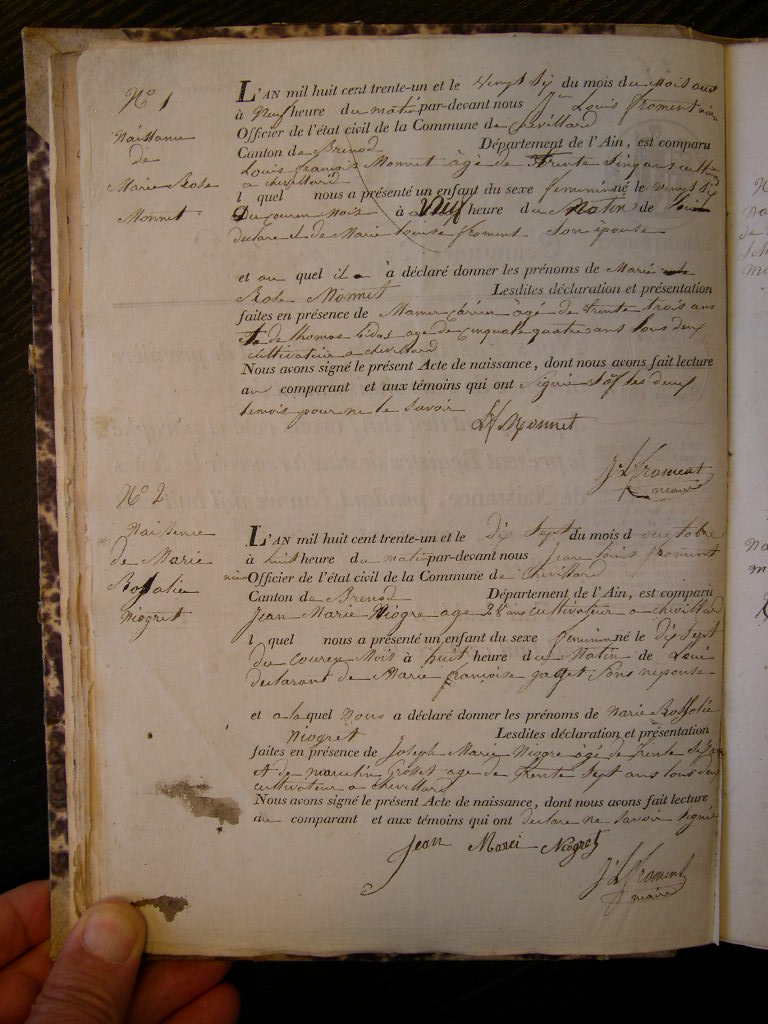 N° 1
Naissance
de
Marie Rose
Monnet
L'AN mil huit cent trente-un et le vingt six du mois du Mois aut
à Neuf heure du matin par-devant nous Jn Louis froment maire
Officier de l'état civil de la Commune de Chevillard
Canton de Brenod Département de l'Ain, est comparu
Louis françois Monnet àgé de trente sing ans cultiv
a chevillard
l quel nous a présenté un enfant du sexe feminin né le vingt six
Du couren mois à neuf heure du Matin de Loui
declare et de Marie louise froment Son épouse
et au quel il a à déclaré donner les prénoms de Marie
Rose Monnet Lesdites déclaration et présentation
faites en présence de àgé de trente trois ans
et de thomas Bidos age de cinquate quatre ans tous deux
cultivateur a chevillard
Nous avons signé le présent Acte de naissance, dont nous avons fait lecture
au comparant et aux témoins qui ont signé les deux
temois pour ne le Savoir
Lf Monnet
J L froment
maire
N° 2
Naissence
de Marie
Rosalie
Niogret
L'AN mil huit cent trente-un et le dix sept du mois d'auctobre
à huit heure du matin par-devant nous Jean louis froment
maire Officier de l'état civil de la Commune de Chevillard
Canton de Brenod Département de l'Ain, est comparu
Jean Marie Niogre age 28 ans cultivateur a chevillard
l quel nous a présenté un enfant du sexe feminin né le dix sept
du couren Mois à huit heure du Matin de Loui
declarant de Marie françoise gaget Sons nepouse
et a la quel Nous a déclaré donner les prénoms de Marie Rossalie
Niogret Lesdites déclaration et présentation
faites en présence de Joseph Marie Niogre àgé de trente
et de marcelin Grosset age de trente Sept ans tous deu
cultivateur a chevillard
Nous avons signé le présent Acte de naissance, dont nous avons fait lecture
au comparant et aux témoins qui ont declare ne savoir signé
Jean Marei Niogret
J L froment
maire